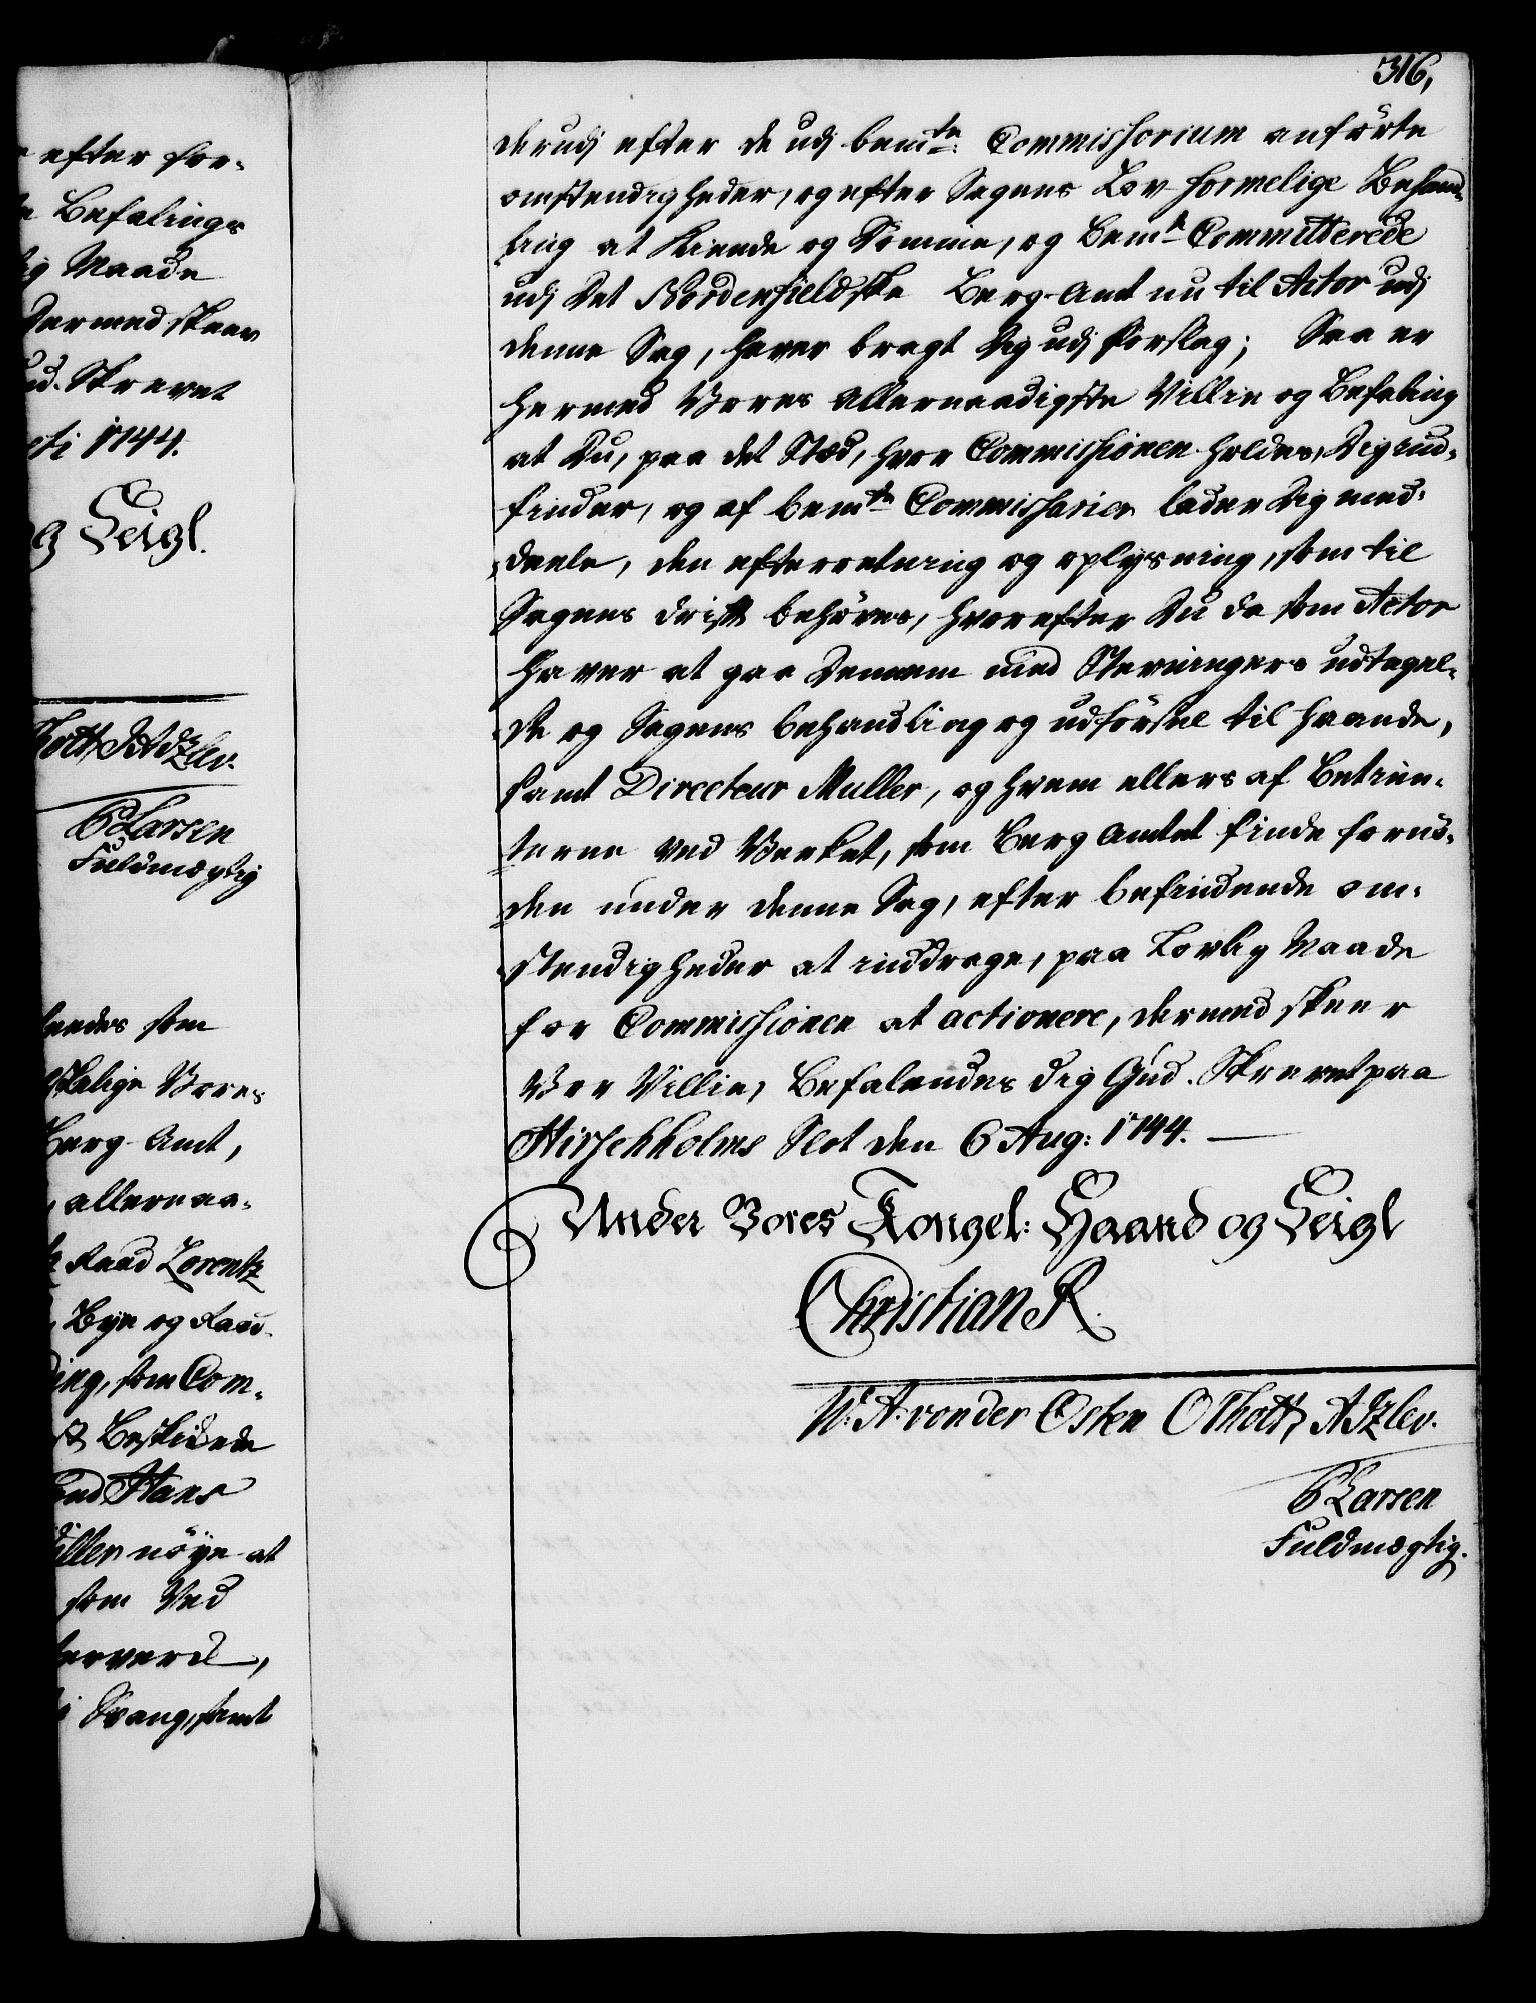 efter for-
Befalings
Maade
Dermed skeer
Gud. Skrevet
1744.
og Seigl.
Thott
CLarsen
Fuldmægtig
som
Vores
Berg-Amt,
allernaa-
Raad Lorentz
Bye og Raad-
som Com-
Beskikkede
Hans
nöye at
som Ved
samt
316,
derudj efter de udj bemte Commissorium anförte
omstendigheder, og efter Sagens Lov-formelige Behand-
ling at kiende og Dömme, og bemte Committerede
udj Det Nordenfieldske Berg-Amt nu til Actor udj
denne Sag, haver bragt Dig udj forslag; Saa er
hermed Vores allernaadigste Villie og Befaling
at Du, paa det Stæd, hvor Commissionen holdes, Dig ind-
finder, og af bemte Commissarier lader Dig med-
deele, den efterretning og oplysning, som til
Sagens drift behöves, hvorefter Du da som Actor
haver at gaa Dennem med Stevningers udtagel-
se og Sagens behandling og udförsel til haande,
samt Directeur Muller, og hvem ellers af Betien-
terne ved Verket, som Berg Amtet finde fornö-
den under denne Sag, efter befindende om-
stendigheder at inddrage, paa Lovlig Maade
for Commissionen at actionere, dermed skeer
Vor Villie, Befalendes dig Gud. Skrevet paa
Hirschholms Slot den 6 Aug: 1744.
Under Vores Kongel: Haand og Seigl
Christian R.
W. A. von der Osten O Thott
CLarsen
Fuldmægtig.